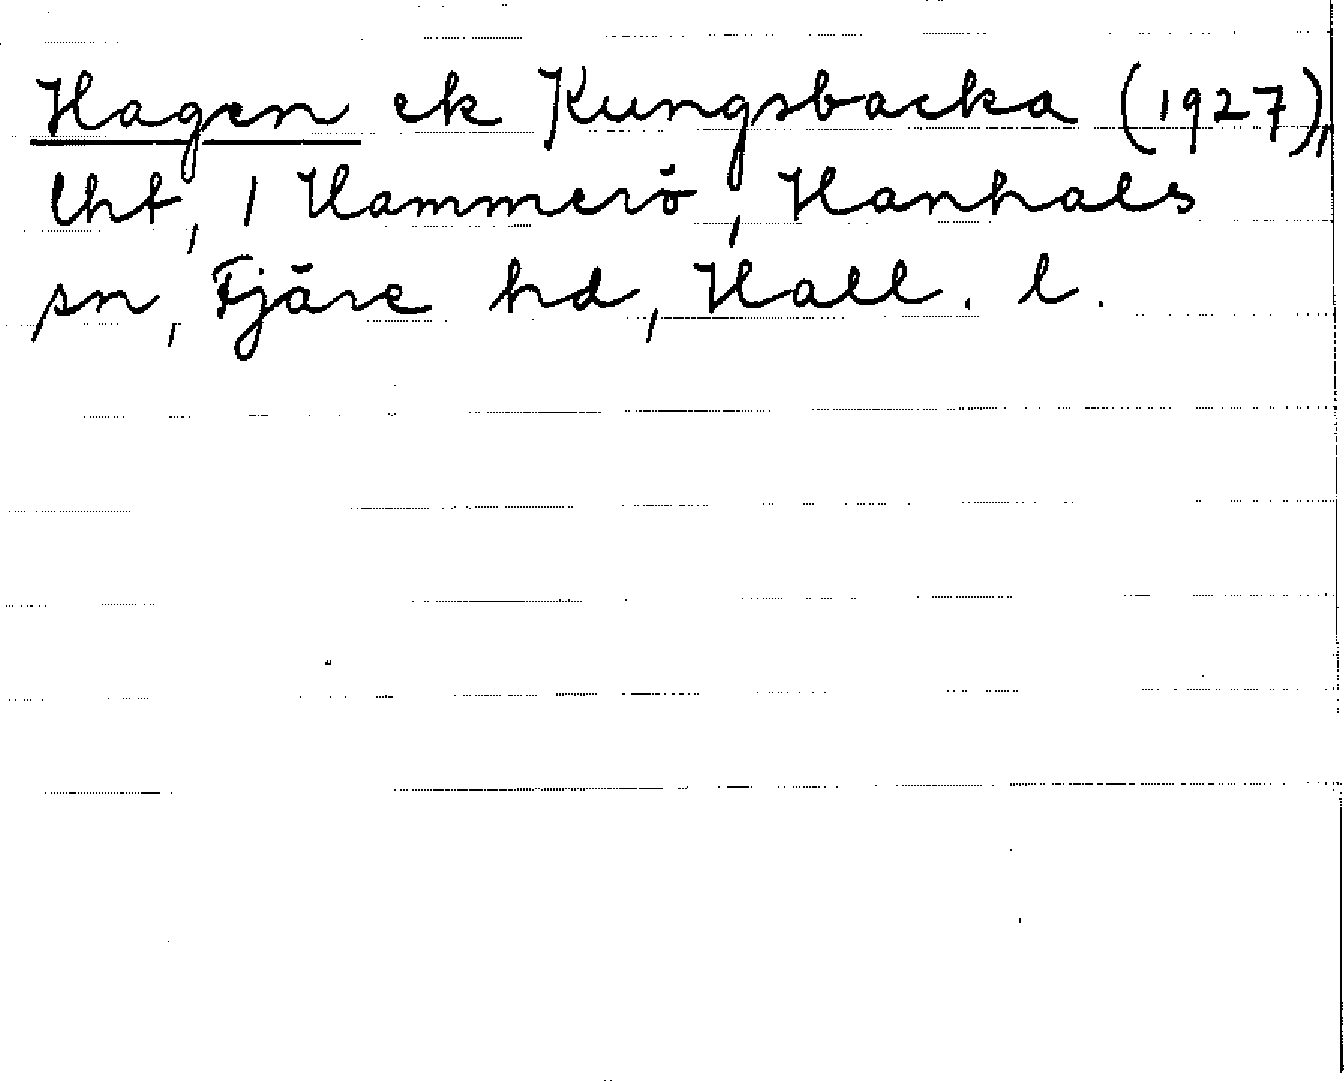 Hagen ek Kungsbacka (1927),
lht, 1 Hammerö, Hanhals
sn, Fjäre hd, Hall. l.